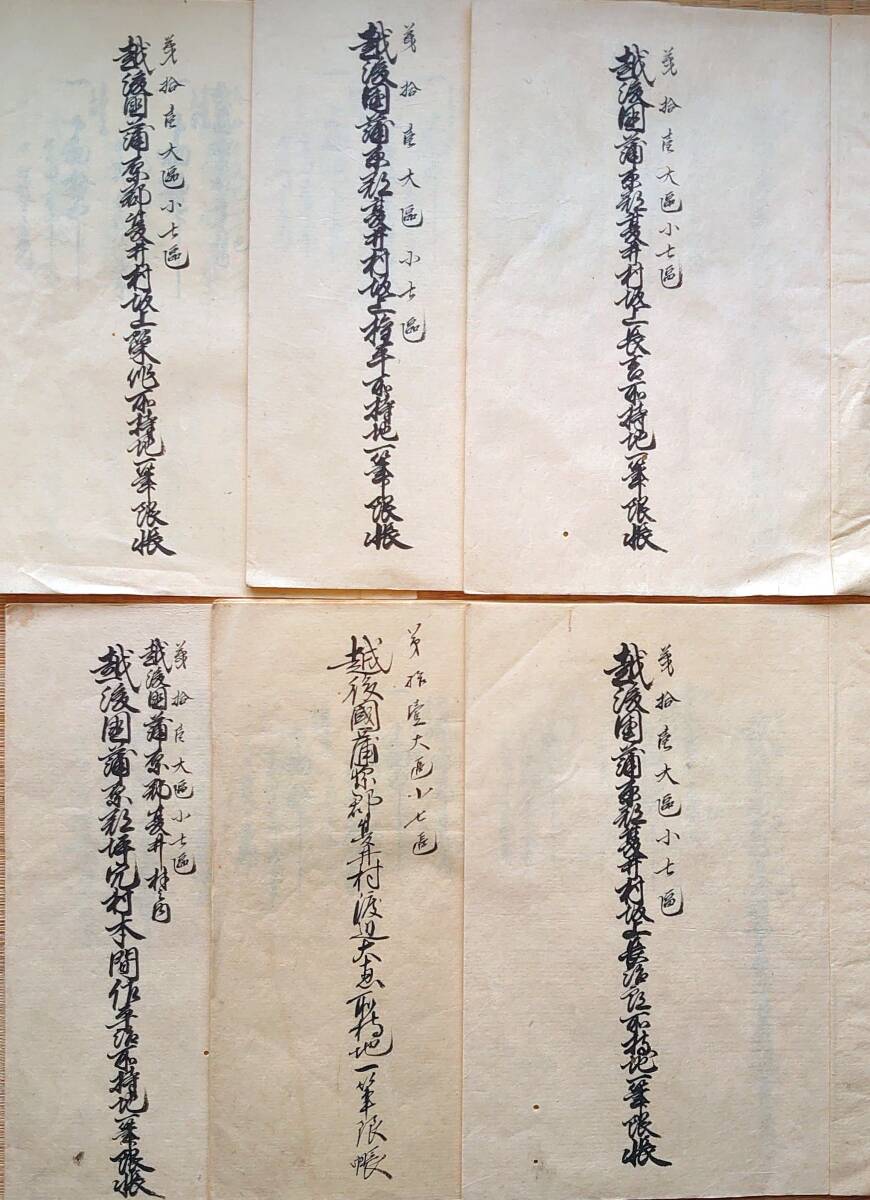 第拾壱大區小七區
越後国蒲原郡美井村坂上長吉所持地一筆限帳
第拾壱大區小七區
越後国蒲原郡美井村坂上権平所持地一筆限帳
第拾壱大區小七區
越後国蒲原郡美井村坂上栄作所持地一筆限帳
第拾壱大區小七區
越後国蒲原郡美井村坂上長治郎所持地一筆限帳
第拾壹大區小七區
越後國蒲原郡美井村渡辺大恵所持地一筆限帳
第拾壱大區小七區
越後国蒲原郡美井村之内
越後国蒲原郡坪穴村本間作平治所持地一筆限帳